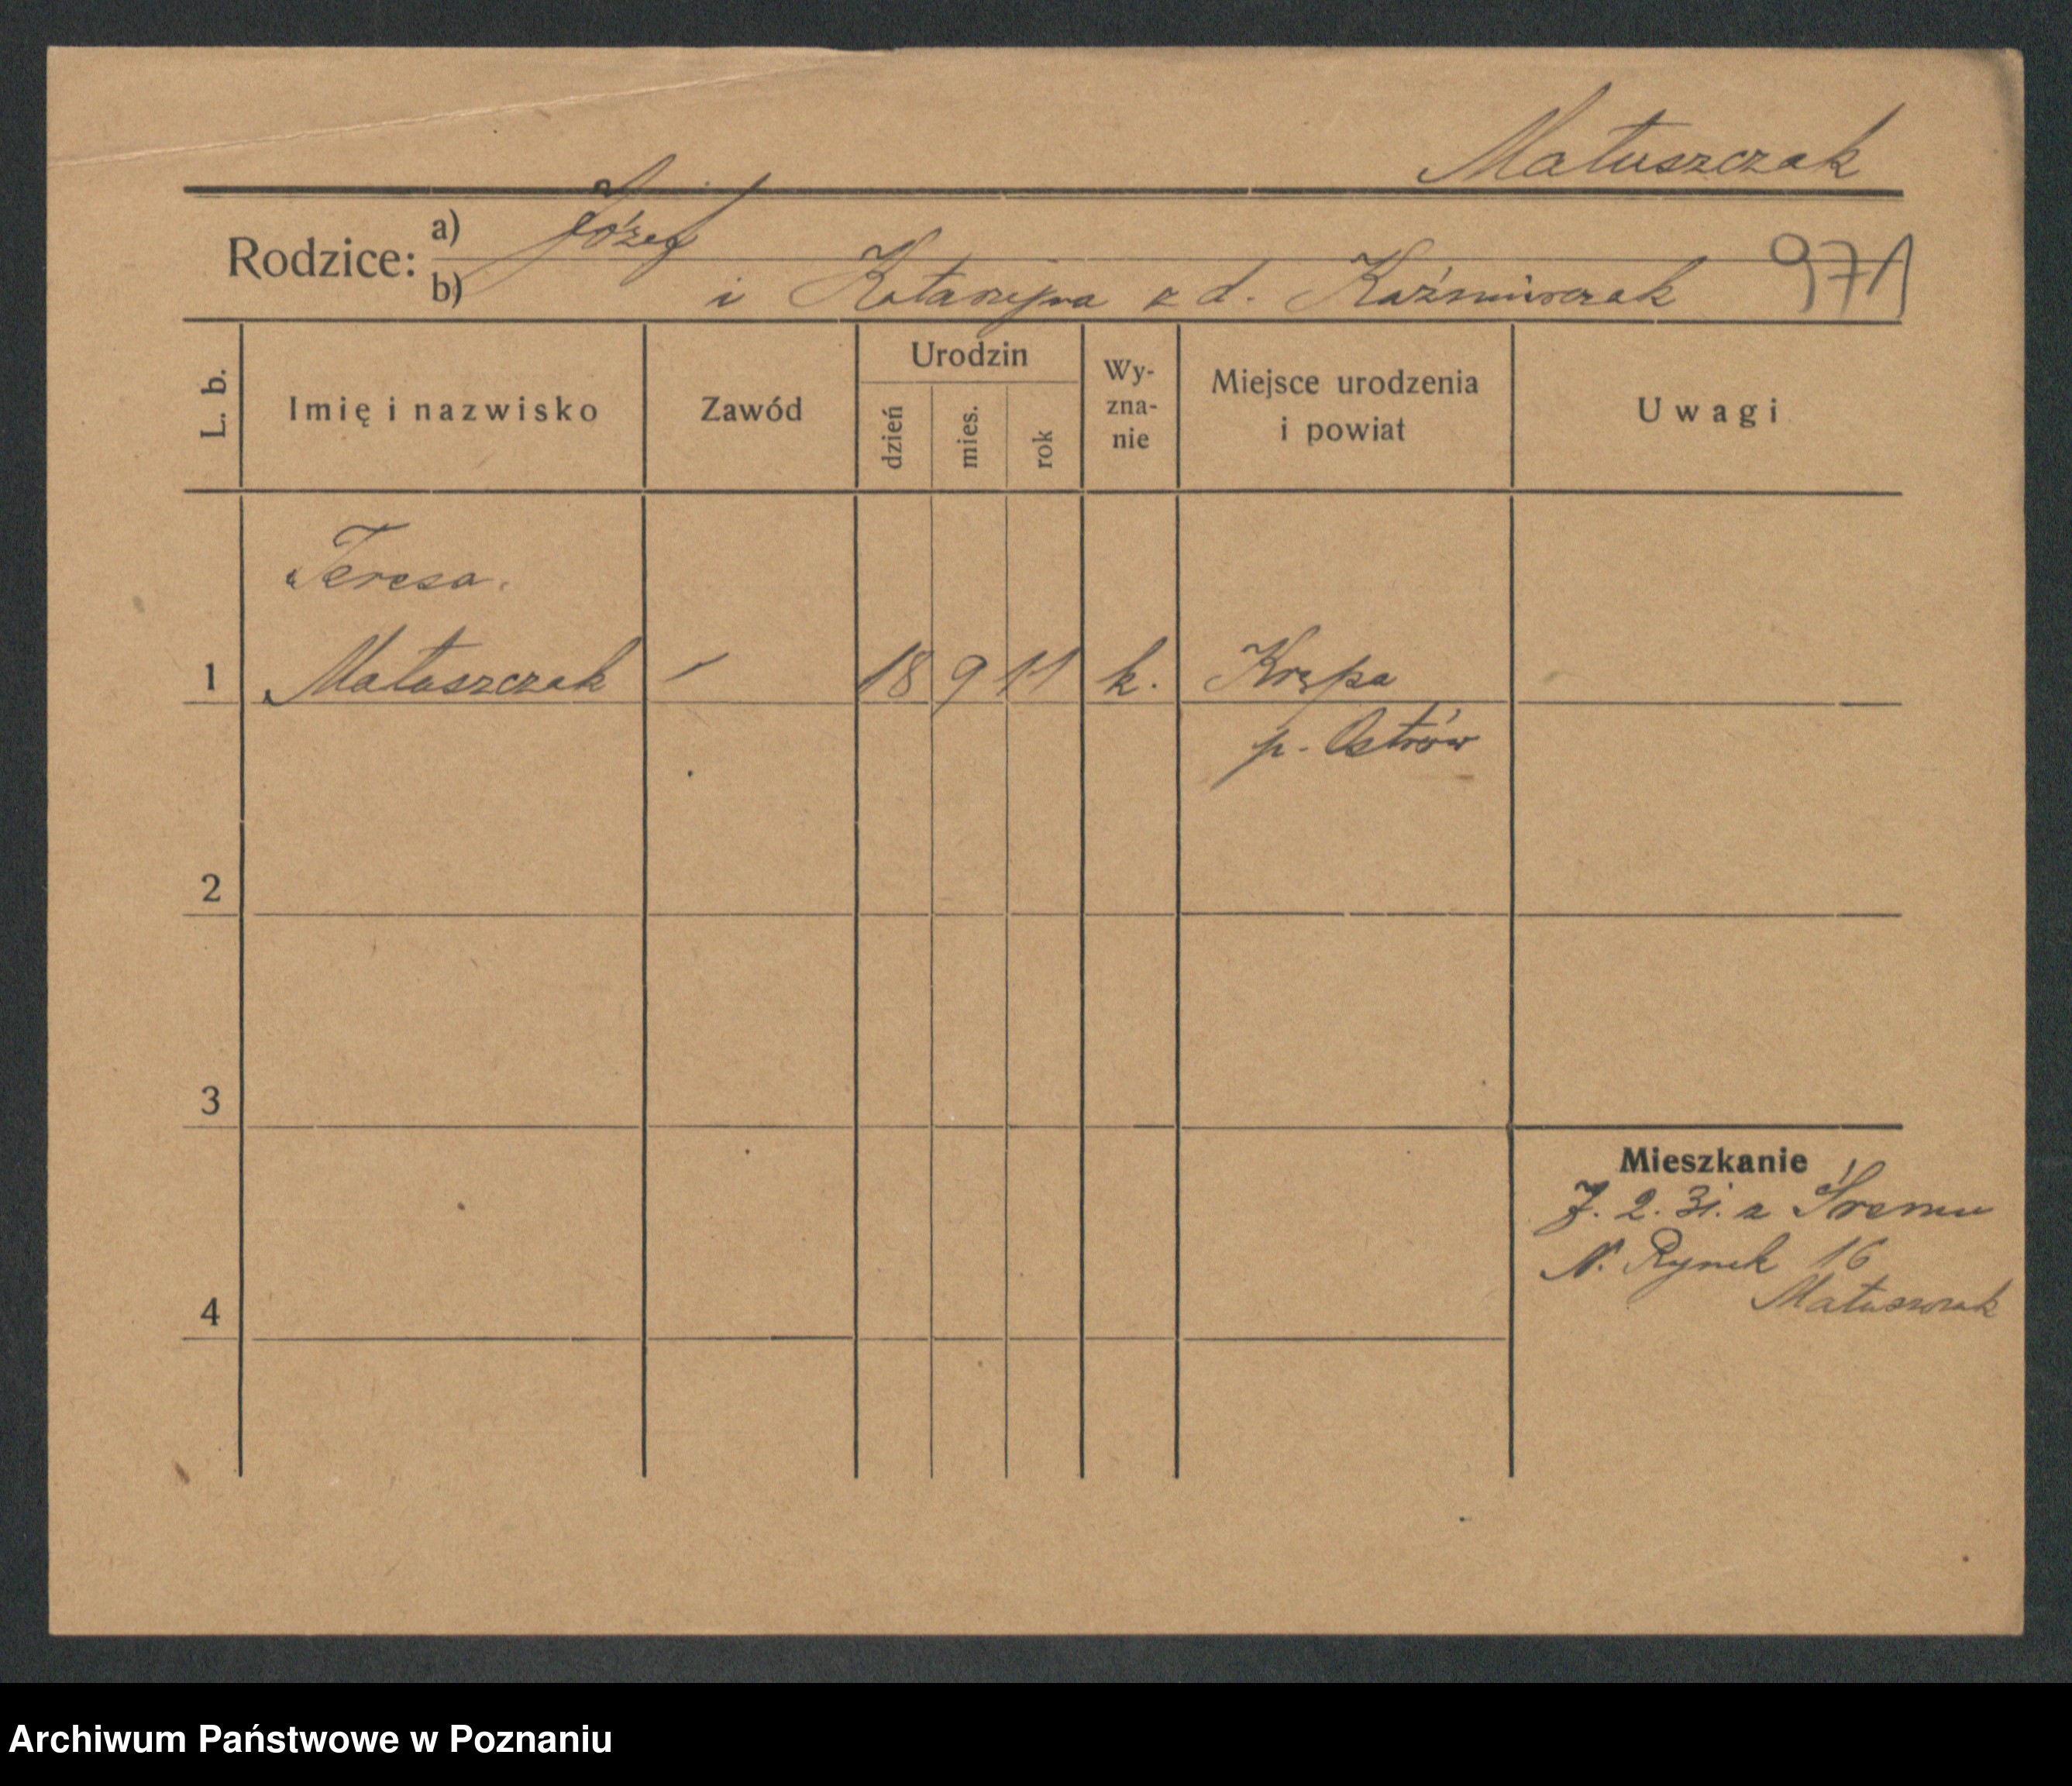 Matuszczak
Rodzice: a) Józef
b) i Katarzyna z d. Kaźmierczak 971
L. b. Imię i nazwisko Zawód Urodzin dzień mies. rok Wy-zna-nie Miejsce urodzenia i powiat Uwagi
Teresa
1 Matuszczak 18 9 11 k. Krępa
p. Ostrów
2
3
Mieszkanie
7. 2. 31. z Śremu
N. Rynek 16
Matuszczak
4
Archiwum Państwowe w Poznaniu